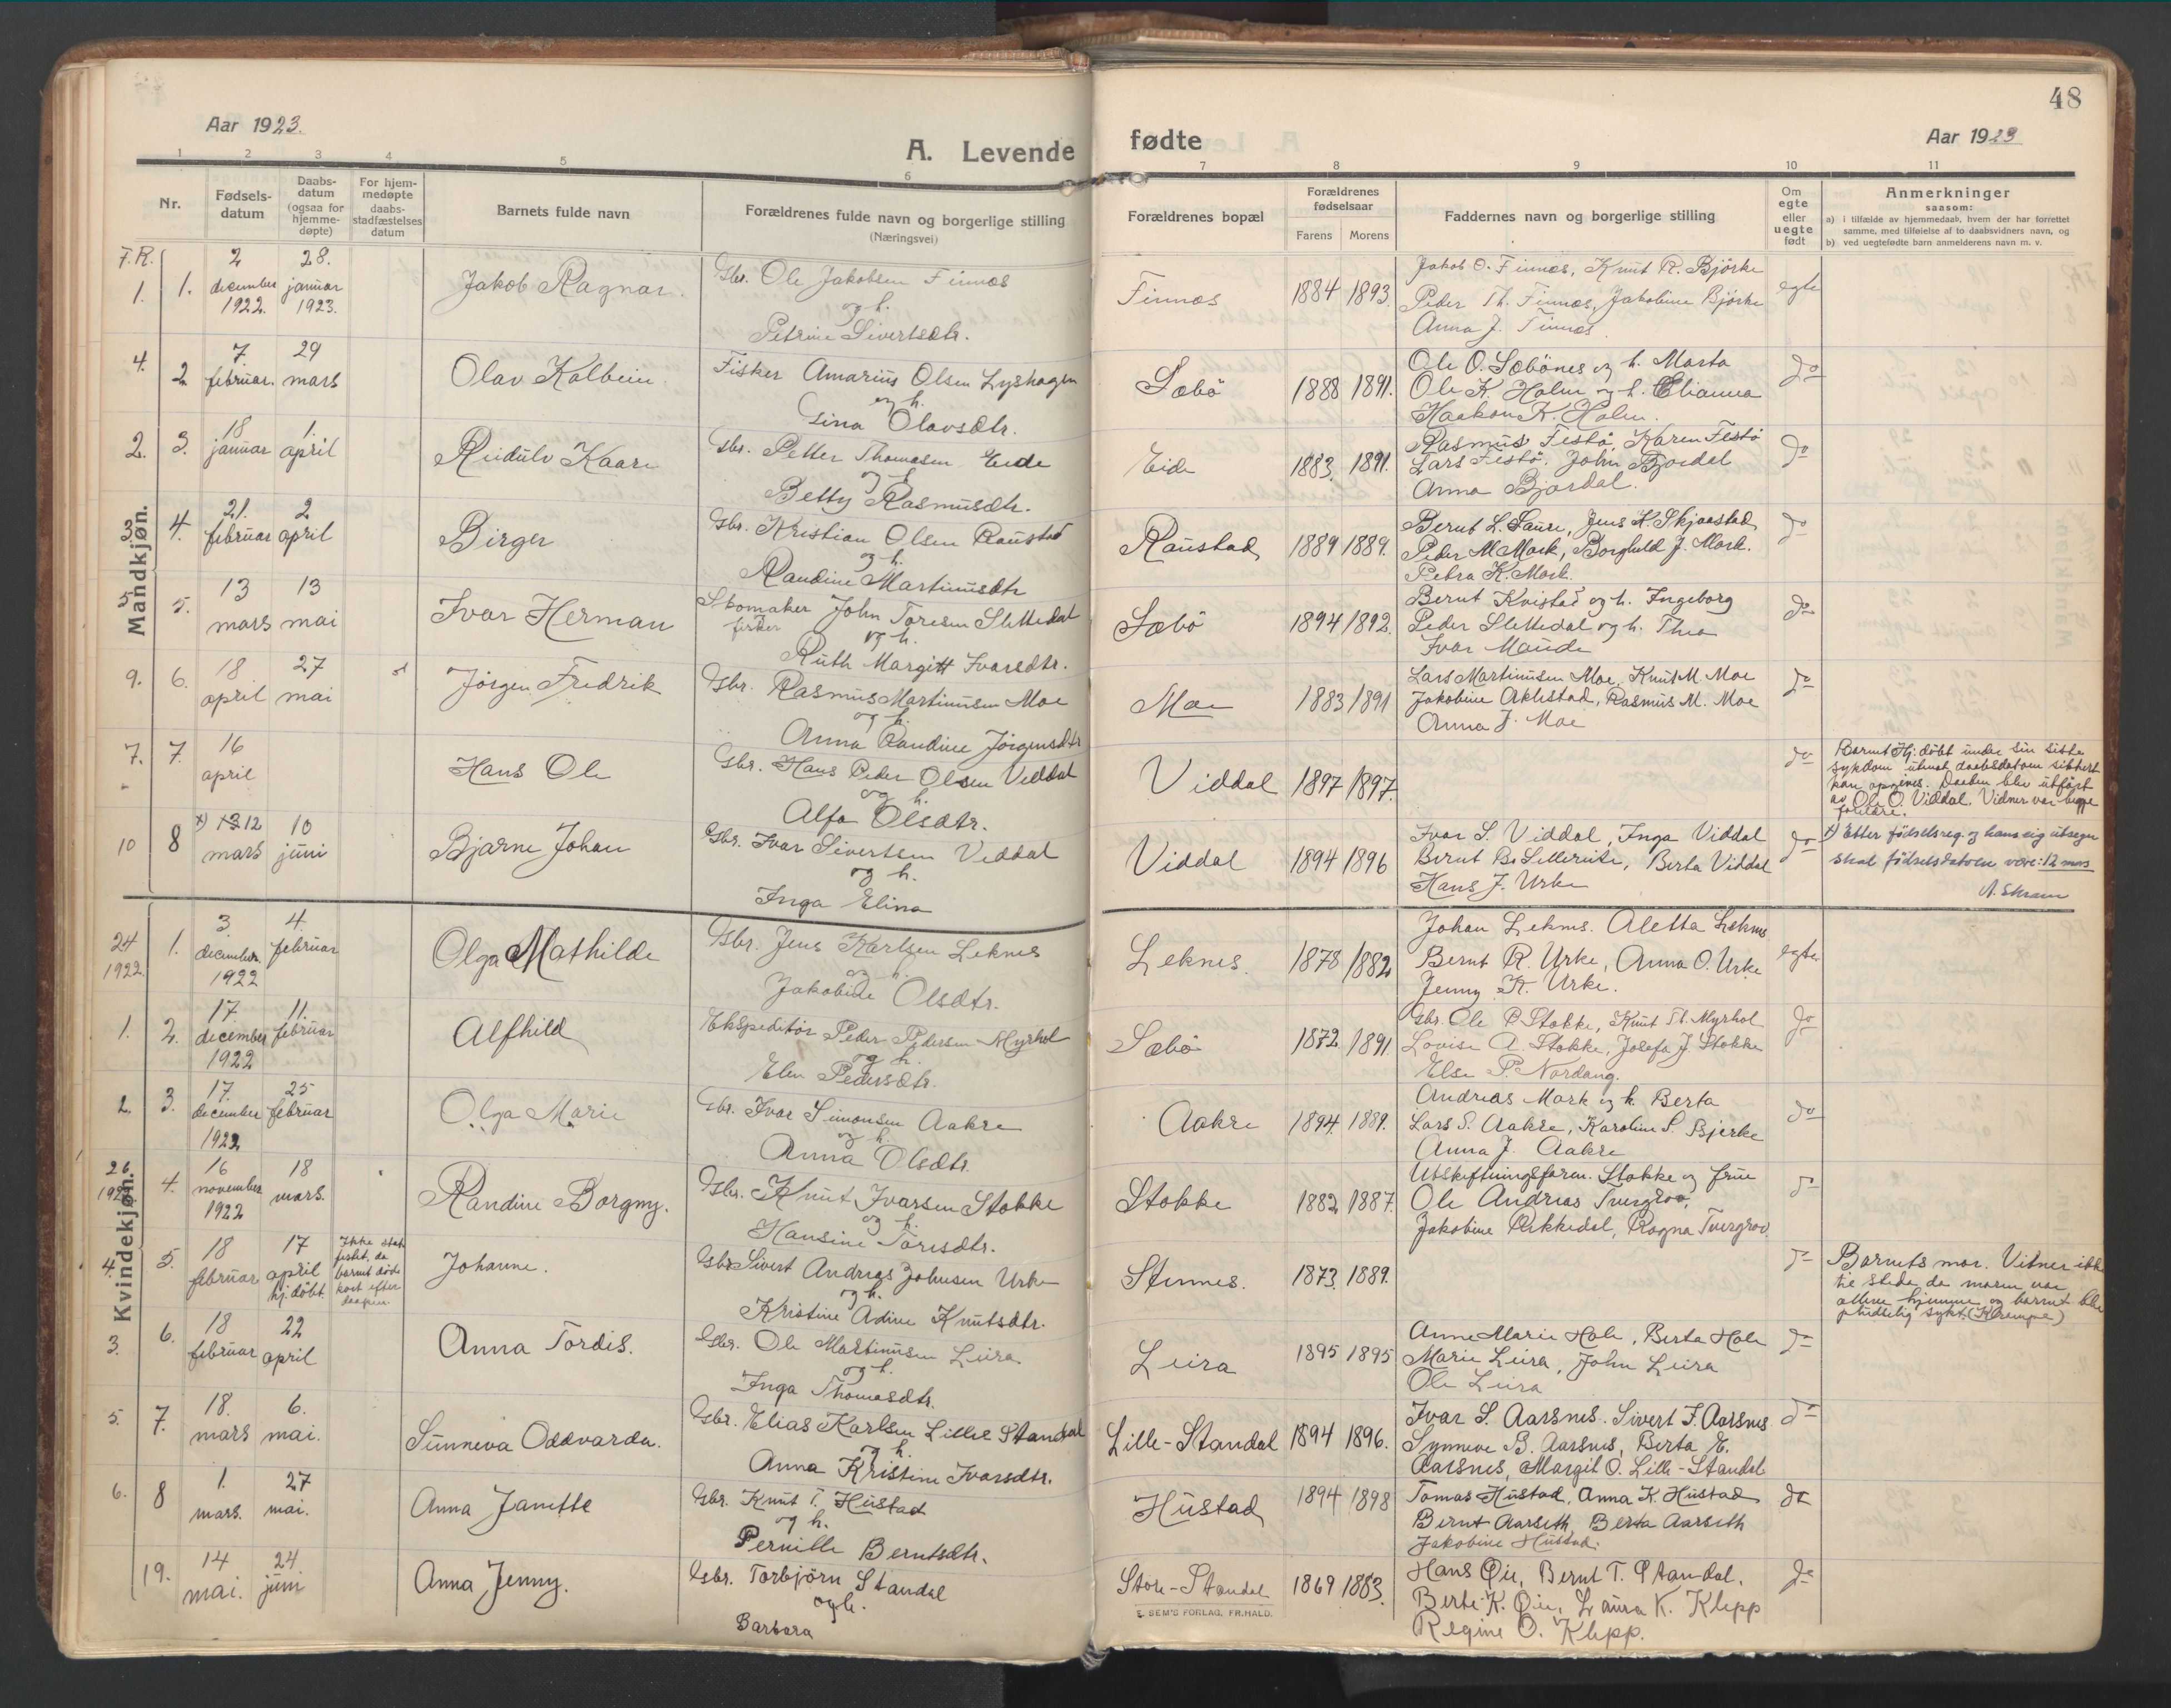 48
Aar 1923.
A. Levende fødte
Aar 1923
1 2 3 4 5 6 7 8 9 10 11
Nr.
Fødsels-
datum
Daabs-
datum
(ogsaa for
hjemme-
døpte)
For hjem-
medøpte
daabs-
stadfæstelses
datum
Barnets fulde navn
Forældrenes fulde navn og borgerlige stilling
(Næringsvei)
Forældrenes bopæl
Forældrenes
fødselsaar
Farens Morens
Faddernes navn og borgerlige stilling
Om
egte
eller
uegte
født
Anmerkninger
saasom:
a) i tilfælde av hjemmedaab, hvem der har forrettet
samme, med tilføielse af to daabsvidners navn, og
b) ved uegtefødte barn anmelderens navn m. v.
Mandkjøn.
F.R.
1. 1. 2 december 1922. 28. januar 1923.
Jakob Ragnar.
Gbr. Ole Jakobsen Finnes
og h.
Petrine Sivertsdtr.
Finnes 1884 1893
Jakob O. Finnes, Knut R. Bjørke
Peder Th. Finnes, Jakobine Bjørke
Anna J. Finnes
egte
4. 2 7. februar. 29 mars
Olav Kolbein
Fisker Amarius Olsen Lyshagen
og h.
Gina Olavsdtr.
Sæbö 1888 1891.
Ole O. Sæbönes og h. Marta
Ole K. Holm og h. Elianna
Haakon K. Holm.
do
2. 3. 18 januar 1. april
Reidulv Kaare
Gbr. Petter Thomasen Eide
og h.
Betty Rasmusdtr.
Eide 1883. 1891.
Rasmus Festö, Karen Festö
Lars Festö, John Bjordal
Anna Bjordal.
do
3. 4. 21. februar 2 april
Birger
Gbr. Kristian Olsen Raustad
og h.
Randine Martinusdtr
Raustad 1889 1889.
Bernt L. Saure, Jens K. Skjaastad
Peder M Mork, Borghild J. Mork.
Petra K. Mork.
do
5. 5. 13 mars 13 mai
Ivar Herman
Skomaker John Toresen Slettedal
fisker
og h.
Ruth Margitt Ivarsdtr.
Sæbö 1894 1892.
Bernt Kvistad og h. Ingeborg
Peder Slettedal og h. Thea
Ivar Maude
do
9. 6. 18 april 27 mai
Jörgen Fredrik
Gbr. Rasmus Martinusen Moe
og h.
Anna Randine Jörgensdtr
Moe 1883 1891
Lars Martinusen Moe, Knut M. Moe
Jakobine Aklestad, Rasmus M. Moe
Anna J. Moe
do
7. 7. 16 april
Hans Ole
Gbr. Hans Peder Olsen Viddal
og h.
Alfa Olsdtr.
Viddal 1897 1897.
do
Barnet Hj. döbt under sin sidste
sykdom uten at daabsdatoen sikkert
kan opgives. Daaben blev utfört
av Ole O. Viddal. Vidner var begge
foreldre.
10 8 x) 13 12 mars 10 juni
Bjarne Johan
Gbr. Ivar Sivertsen Viddal
og h.
Inga Elina
Viddal 1894 1896
Ivar S. Viddal, Inga Viddal
Bernt Bs Sætereite, Berta Viddal
Hans J. Urke
do
x) Etter födselsreg. og hans eig utsegn
skal födselsdatoen være: 12 mars
Kvindekjøn.
24 1922. 1. 3. december. 1922 4. februar
Olga Mathilde
Gbr. Jens Karlsen Leknes
og h.
Jakobine Olsdtr.
Leknes. 1878 1882
Johan Leknes. Aletta Leknes
Bernt R. Urke, Anna O. Urke
Jenny K. Urke.
egte
1. 2. 17. december 1922 11. februar
Alfhild
Ekspeditör Peder Pedersen Myrhol
og h.
Elen Pedersdtr.
Sæbö 1872 1891
Gbr. Ole P Stokke, Knut Th. Myrhol
Lovise A. Stokke, Josefa J. Stokke
Else P. Nordang.
do
2. 3. 17. december 1922 25 februar
Olga Marie
Gbr. Ivar Simonsen Aakre
og h.
Anna Olsdtr.
Aakre 1894. 1889.
Andreas Mork og h. Berta
Lars S. Aakre, Karoline S. Bjerke
Anna J. Aakre
do
26 1922 4. 16 november 1922 18 mars.
Randine Borgny.
Gbr. Knut Ivarsen Stokke
og h.
Hansine Toresdtr.
Stokke 1882 1887.
Utskiftningsform. Stokke og frue
Ole Andreas Tvergrov,
Jakobine Rekkedal, Ragna Tvergrov
do
4. 5. 18 februar 17 april hj. döbt.
Ikke stad-
festet, da
barnet döde
kort efter
daapen.
Johanne.
Gbr Sivert Andreas Johnsen Urke
og h.
Kristine Adine Knutsdtr.
Stennes. 1873. 1889.
do
Barnets mor. Vitner ikke
til stede da moren var
alene hjemme og barnet blev
pludselig sykt.
3. 6. 18 februar 22 april
Anna Tordis.
Gbr. Ole Martinusen Leira
og h.
Inga Thomasdtr.
Leira 1895 1895
Anne Marie Hole, Berta Hole
Marie Leira, John Leira
Ole Leira
do
5. 7. 18. mars 6. mai.
Sunneva Oddvarda.
Gbr. Elias Karlsen Lille Standal
og h.
Anna Kristine Ivarsdtr.
Lille-Standal 1894 1896.
Ivar S. Aarsnes. Sivert I. Aarsnes
Synneve B. Aarsnes, Berta E.
Aarsnes, Margit O. Lille-Standal
do
6. 8 1. mars. 27 mai.
Anna Janette
Gbr. Knut T. Hustad
og h.
Pernille Berntsdtr.
Hustad 1894 1898
Tomas Hustad, Anna K. Hustad
Bernt Aarseth, Berta Aarseth
Jakobine Hustad.
do
19. 14 mai. 24. juni
Anna Jenny.
Gbr. Torbjörn Standal
og h.
Barbara
Store-Standal 1869 1883.
Hans Øie, Bernt T. Standal.
Berte K. Øie, Laura K. Klepp
Regine O. Klepp.
do
E. SEM'S FORLAG, FR.HALD.